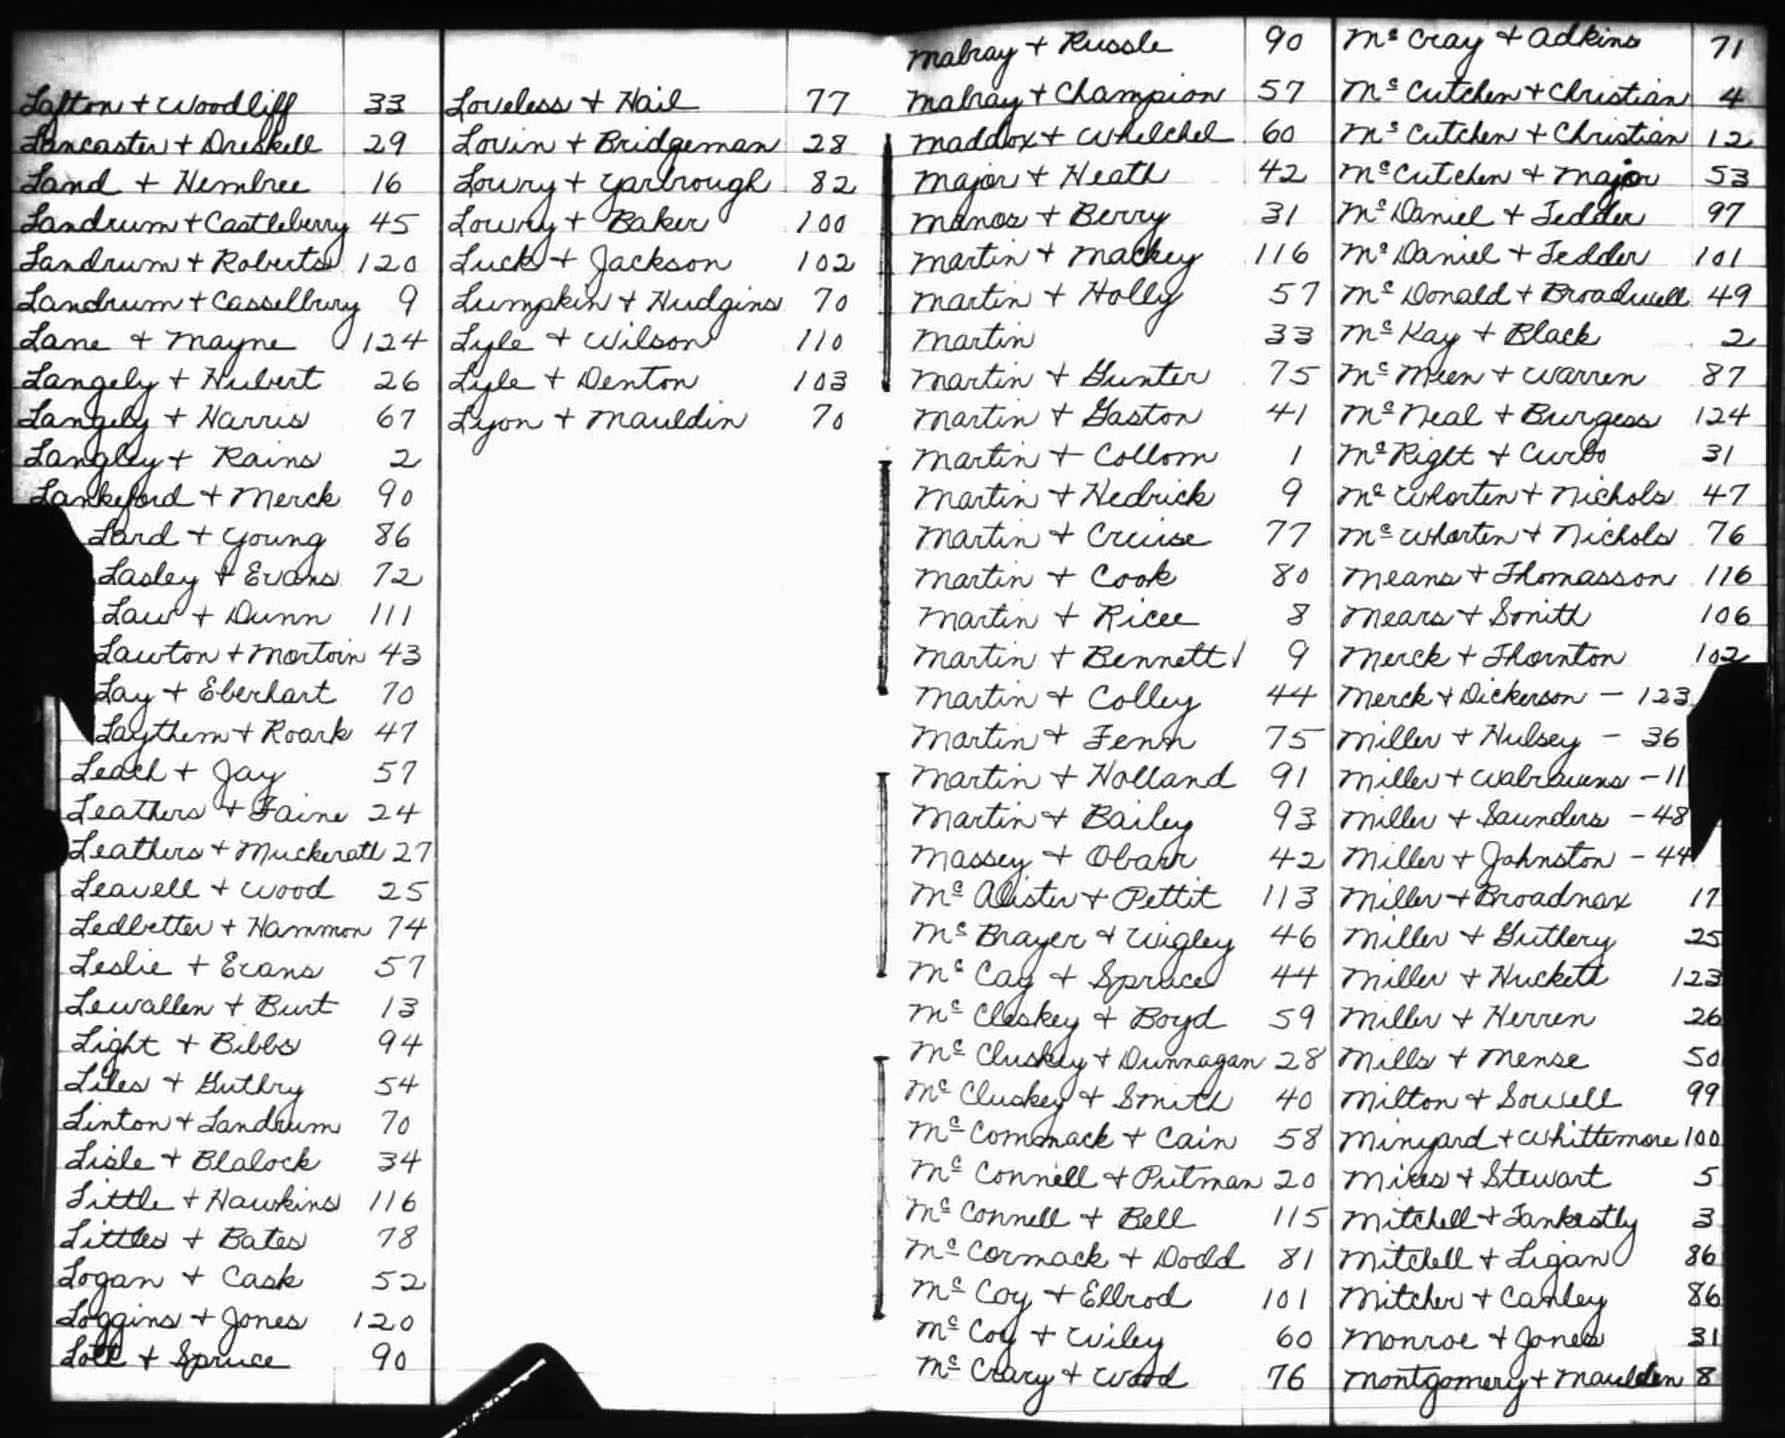 Lafton + Woodliff 33
Lancaster + Dreskell 29
Land + Hembree 16
Landrum + Castleberry 45
Landrum + Roberts 120
Landrum + Casselbury 9
Lane + Mayne 124
Langely + Hubert 26
Langely + Harris 67
Langley + Rains 2
Lankeford + Merck 90
Lard + Young 86
Lasley + Evans 72
Law + Dunn 111
Lawton + Mortoin 43
Lay + Eberhart 70
Laythem + Roark 47
Leach + Jay 57
Leathers + Faine 24
Leathers + Muckeratl 27
Leavell + Wood 25
Ledbetter + Hammon 74
Leslie + Evans 57
Lewallen + Burt 13
Light + Bibbs 94
Liles + Guthry 54
Linton + Landrum 70
Lisle + Blalock 34
Little + Hawkins 116
Littles + Bates 78
Logan + Cask 52
Loggins + Jones 120
Lott + Spruce 90
Loveless + Hail 77
Lovin + Bridgeman 28
Lowry + Yarbrough 82
Lowry + Baker 100
Luck + Jackson 102
Lumpkin + Hudgins 70
Lyle + Wilson 110
Lyle + Denton 103
Lyon + Mauldin 70
Mabray + Russle 90
Mabray + Champion 57
Maddox + Whelchel 60
Major + Heath 42
Manos + Berry 31
Martin + Mackey 116
Martin + Holly 57
Martin 33
Martin + Gunter 75
Martin + Gaston 41
Martin + Collom 1
Martin + Hedrick 9
Martin + Cruise 77
Martin + Cook 80
Martin + Ricee 8
Martin + Bennett 9
Martin + Colley 44
Martin + Fenn 75
Martin + Holland 91
Martin + Bailey 93
Massey + Obarr 42
Mc Alister + Pettit 113
Mc Brayer + Wigley 46
Mc Cay + Spruce 44
Mc Cleskey + Boyd 59
Mc Cluskey + Dunnagan 28
Mc Cluskey + Smith 40
Mc Commack + Cain 58
Mc Connell + Putman 20
Mc Connell + Bell 115
Mc Cormack + Dodd 81
Mc Coy + Ellrod 101
Mc Coy + Wiley 60
Mc Crary + Wood 76
Mc Cray + Adkins 71
Mc Cutchen + Christian 4
Mc Cutchen + Christian 12
Mc Cutchen + Major 53
Mc Daniel + Tedder 97
Mc Daniel + Tedder 101
Mc Donald + Broadwell 49
Mc Kay + Black 2
Mc Meen + Warren 87
Mc Neal + Burgess 124
Mc Right + Curbo 31
Mc Whorten + Nichols 47
Mc Whorten + Nichols 76
Means + Thomasson 116
Mears + Smith 106
Merck + Thornton 102
Merck + Dickerson - 123
Miller + Hulsey - 36
Miller + Walraviens - 11
Miller + Saunders - 48
Miller + Johnston - 44
Miller + Broadnax 17
Miller + Guthery 25
Miller + Huckett 123
Miller + Herren 26
Mills + Mense 50
Milton + Sowell 99
Minyard + Whittemore 100
Mires + Stewart 5
Mitchell + Tankestly 3
Mitchell + Ligan 86
Mitcher + Canley 86
Monroe + Jones 31
Montgomery + Maulden 8